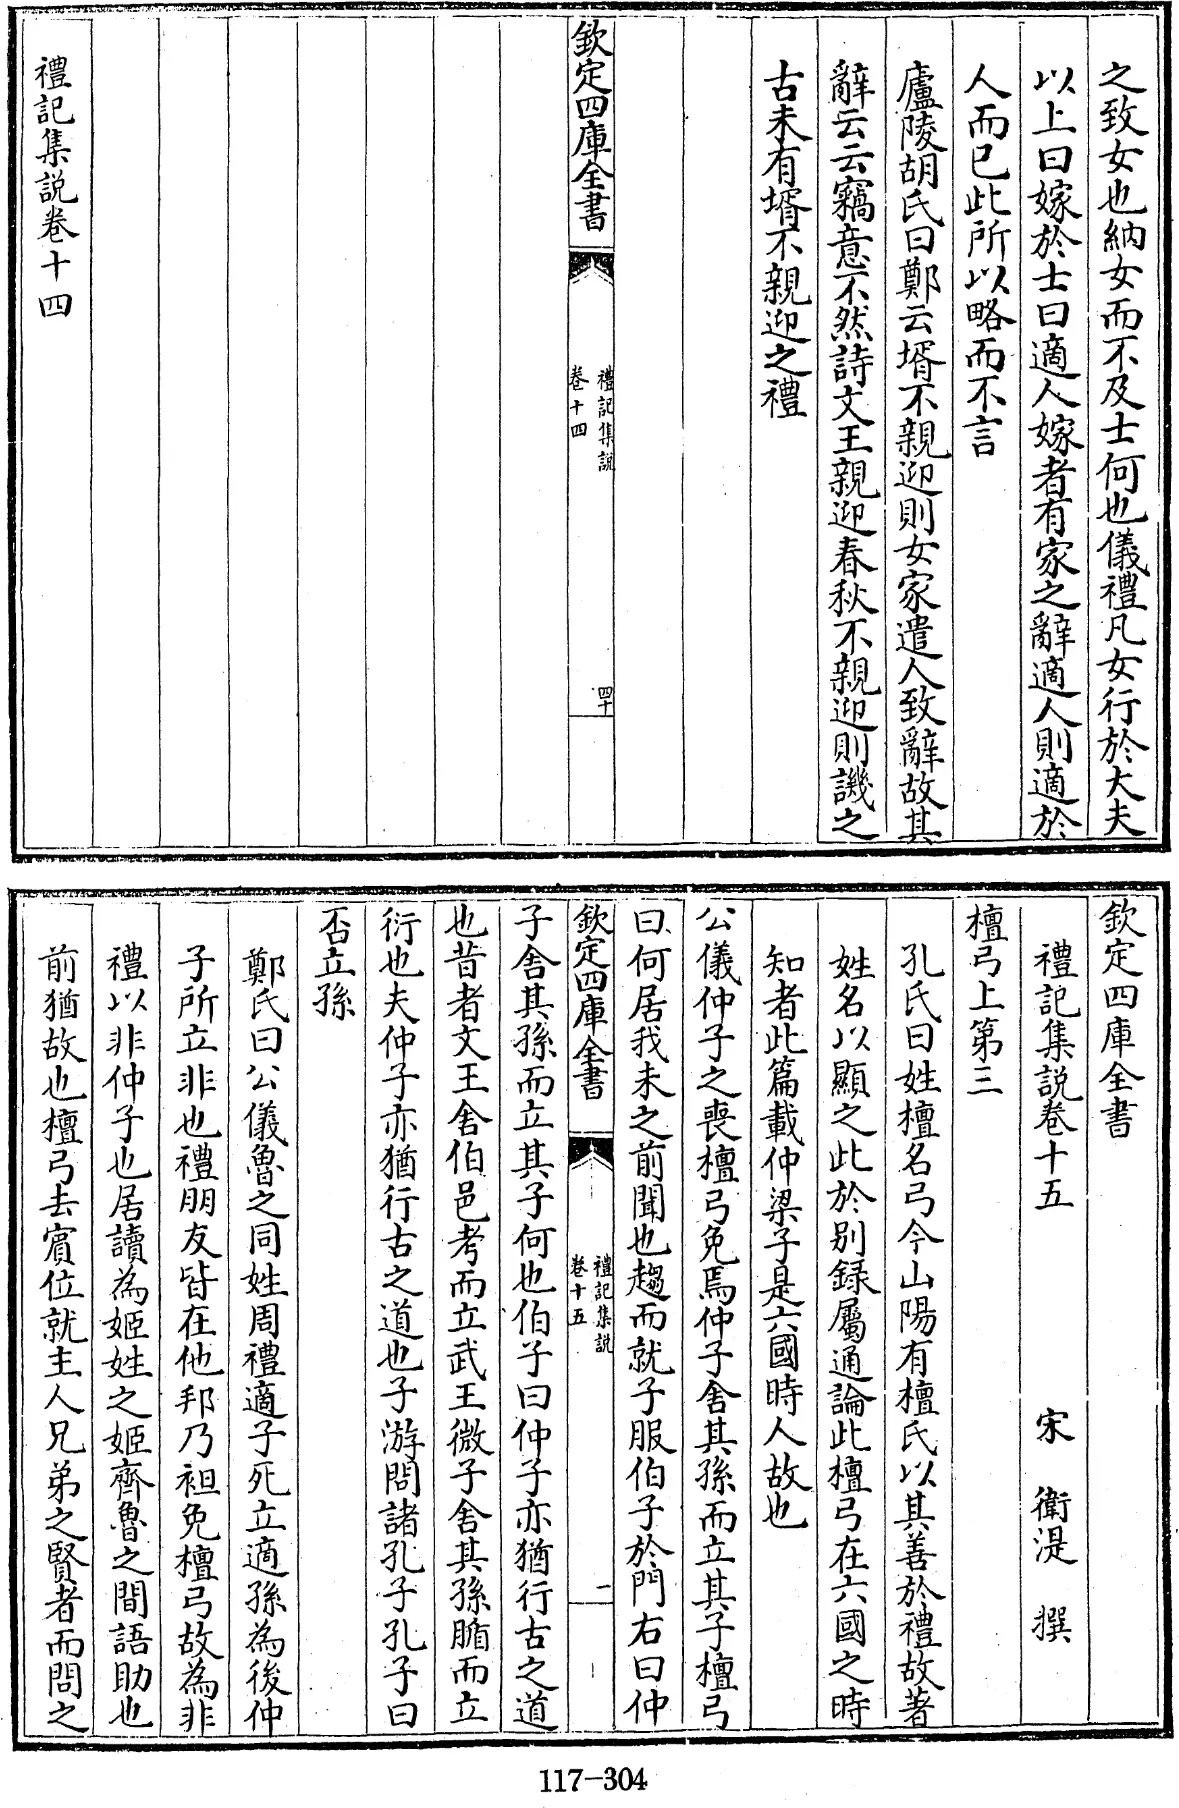 之致女也納女而不及士何也儀禮凡女行於大夫
以上曰嫁於士曰適人嫁者有家之辭適人則適於
人而已此所以略而不言
廬陵胡氏曰鄭云壻不親迎則女家遣人致辭故其
辭云云竊意不然詩文王親迎春秋不親迎則譏之
古未有壻不親迎之禮
欽定四庫全書
禮記集說
卷十四
四十
禮記集說卷十四
欽定四庫全書
禮記集說卷十五
宋 衛湜 撰
檀弓上第三
孔氏曰姓檀名弓今山陽有檀氏以其善於禮故著
姓名以顯之此於别録屬通論此檀弓在六國之時
知者此篇載仲梁子是六國時人故也
公儀仲子之喪檀弓免焉仲子舍其孫而立其子檀弓
曰何居我未之前聞也趨而就子服伯子於門右曰仲
欽定四庫全書
禮記集說
卷十五
一
子舍其孫而立其子何也伯子曰仲子亦猶行古之道
也昔者文王舍伯邑考而立武王微子舍其孫腯而立
衍也夫仲子亦猶行古之道也子游問諸孔子孔子曰
否立孫
鄭氏曰公儀魯之同姓周禮適子死立適孫為後仲
子所立非也禮朋友皆在他邦乃袒免檀弓故為非
禮以非仲子也居讀為姬姓之姬齊魯之間語助也
前猶故也檀弓去賔位就主人兄弟之賢者而問之
117-304